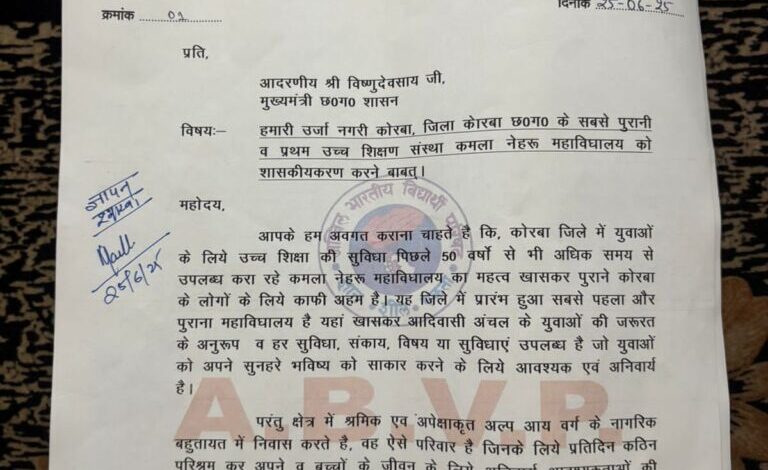 क्रमांक 01 दिनांक 25-06-25
प्रति,
आदरणीय श्री विष्णुदेवसाय जी,
मुख्यमंत्री छ0ग0 शासन
विषयः- हमारी उर्जा नगरी कोरबा, जिला केारबा छ0ग0 के सबसे पुरानी
व प्रथम उच्च शिक्षण संस्था कमला नेहरू महाविघालय को
शासकीयकरण करने बाबत्।
महोदय,
आपके हम अवगत कराना चाहते है कि, कोरबा जिले में युवाओं
के लिये उच्च शिक्षा की सुविधा पिछले 50 वर्षो से भी अधिक समय से
उपलब्ध करा रहे कमला नेहरू महाविघालय का महत्व खासकर पुराने कोरबा
के लोगों के लिये काफी अहम है। यह जिले में प्रारंभ हुआ सबसे पहला और
पुराना महाविघालय है यहां खासकर आदिवासी अंचल के युवाओं की जरूरत
के अनुरूप व हर सुविधा, संकाय, विषय या सुविधाएं उपलब्ध है जो युवाओं
को अपने सुनहरे भविष्य को साकार करने के लिये आवश्यक एवं अनिवार्य
है।
A.B.V.P.
परंतु क्षेत्र में श्रमिक एवं अपेक्षाकृत अल्प आय वर्ग के नागरिक
बहुतायत में निवास करते है, वह ऐसे परिवार है जिनके लिये प्रतिदिन कठिन
परिश्रम कर अपने व बच्चों के जीवन के लिये अनिवार्य आवश्यकताओं की
ज्ञापन
25/6/25
अखिल भारतीय विद्यार्थी परिषद
शील